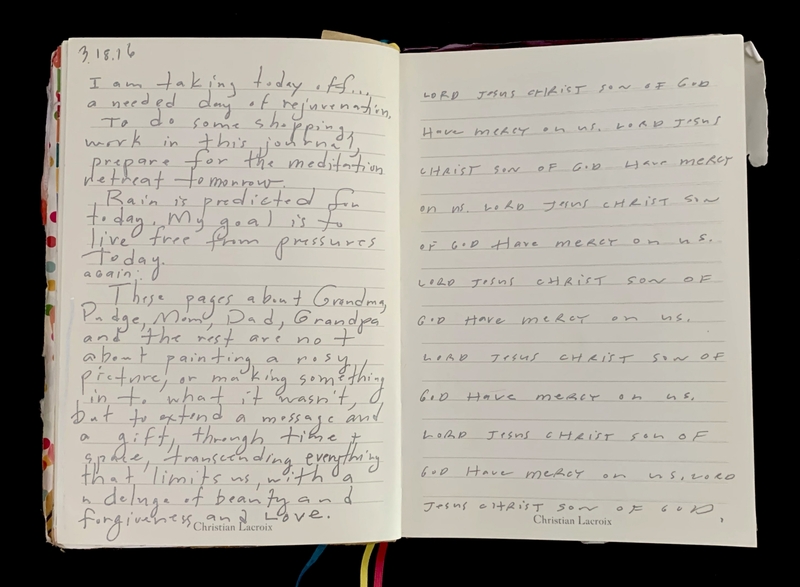 3.18.16
I am taking today off...
a needed day of rejuvenation.
To do some shopping,
work in this journal,
prepare for the meditation
retreat tomorrow.
Rain is predicted for
today. My goal is to
live free from pressures
today.
again:
These pages about Grandma,
Pudge, Mom, Dad, Grandpa
and the rest are not
about painting a rosy
picture, or making something
in to what it wasn't,
but to extend a message and
a gift, through time +
space, transcending everything
that limits us, with a
deluge of beauty and
forgiveness and Love.
Christian Lacroix
LORD JESUS CHRIST SON OF GOD
HAVE MERCY ON US. LORD JESUS
CHRIST SON OF GOD HAVE MERCY
ON US. LORD JESUS CHRIST SON
OF GOD HAVE MERCY ON US.
LORD JESUS CHRIST SON OF
GOD HAVE MERCY ON US.
LORD JESUS CHRIST SON OF
GOD HAVE MERCY ON US.
LORD JESUS CHRIST SON OF
GOD HAVE MERCY ON US, LORD
JESUS CHRIST SON OF GOD,
Christian Lacroix